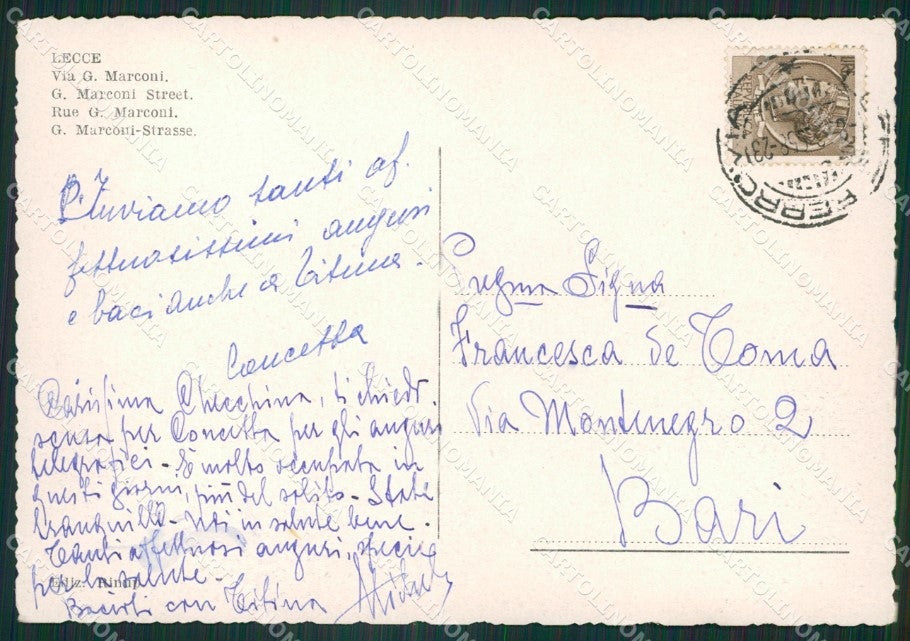 LECCE
Via G. Marconi.
G. Marconi Street.
Rue G. Marconi.
G. Marconi-Strasse.
Inviamo tanti af-
fettuosissimi auguri
e baci anche a Titina.
Concetta
Carissima Checchina, ti chiedo
scusa per Concetta per gli auguri
telegrafici - È molto occupata in
questi giorni, più del solito - State
tranquilla - Noi in salute bene.
Tanti affettuosi auguri, specie
per la salute -
Bacioti con Titina
Ediz. Rimini
Pregma Signa
Francesca de Toma
Via Montenegro 2
Bari
FERROVIA
CARTOLINOMANIA